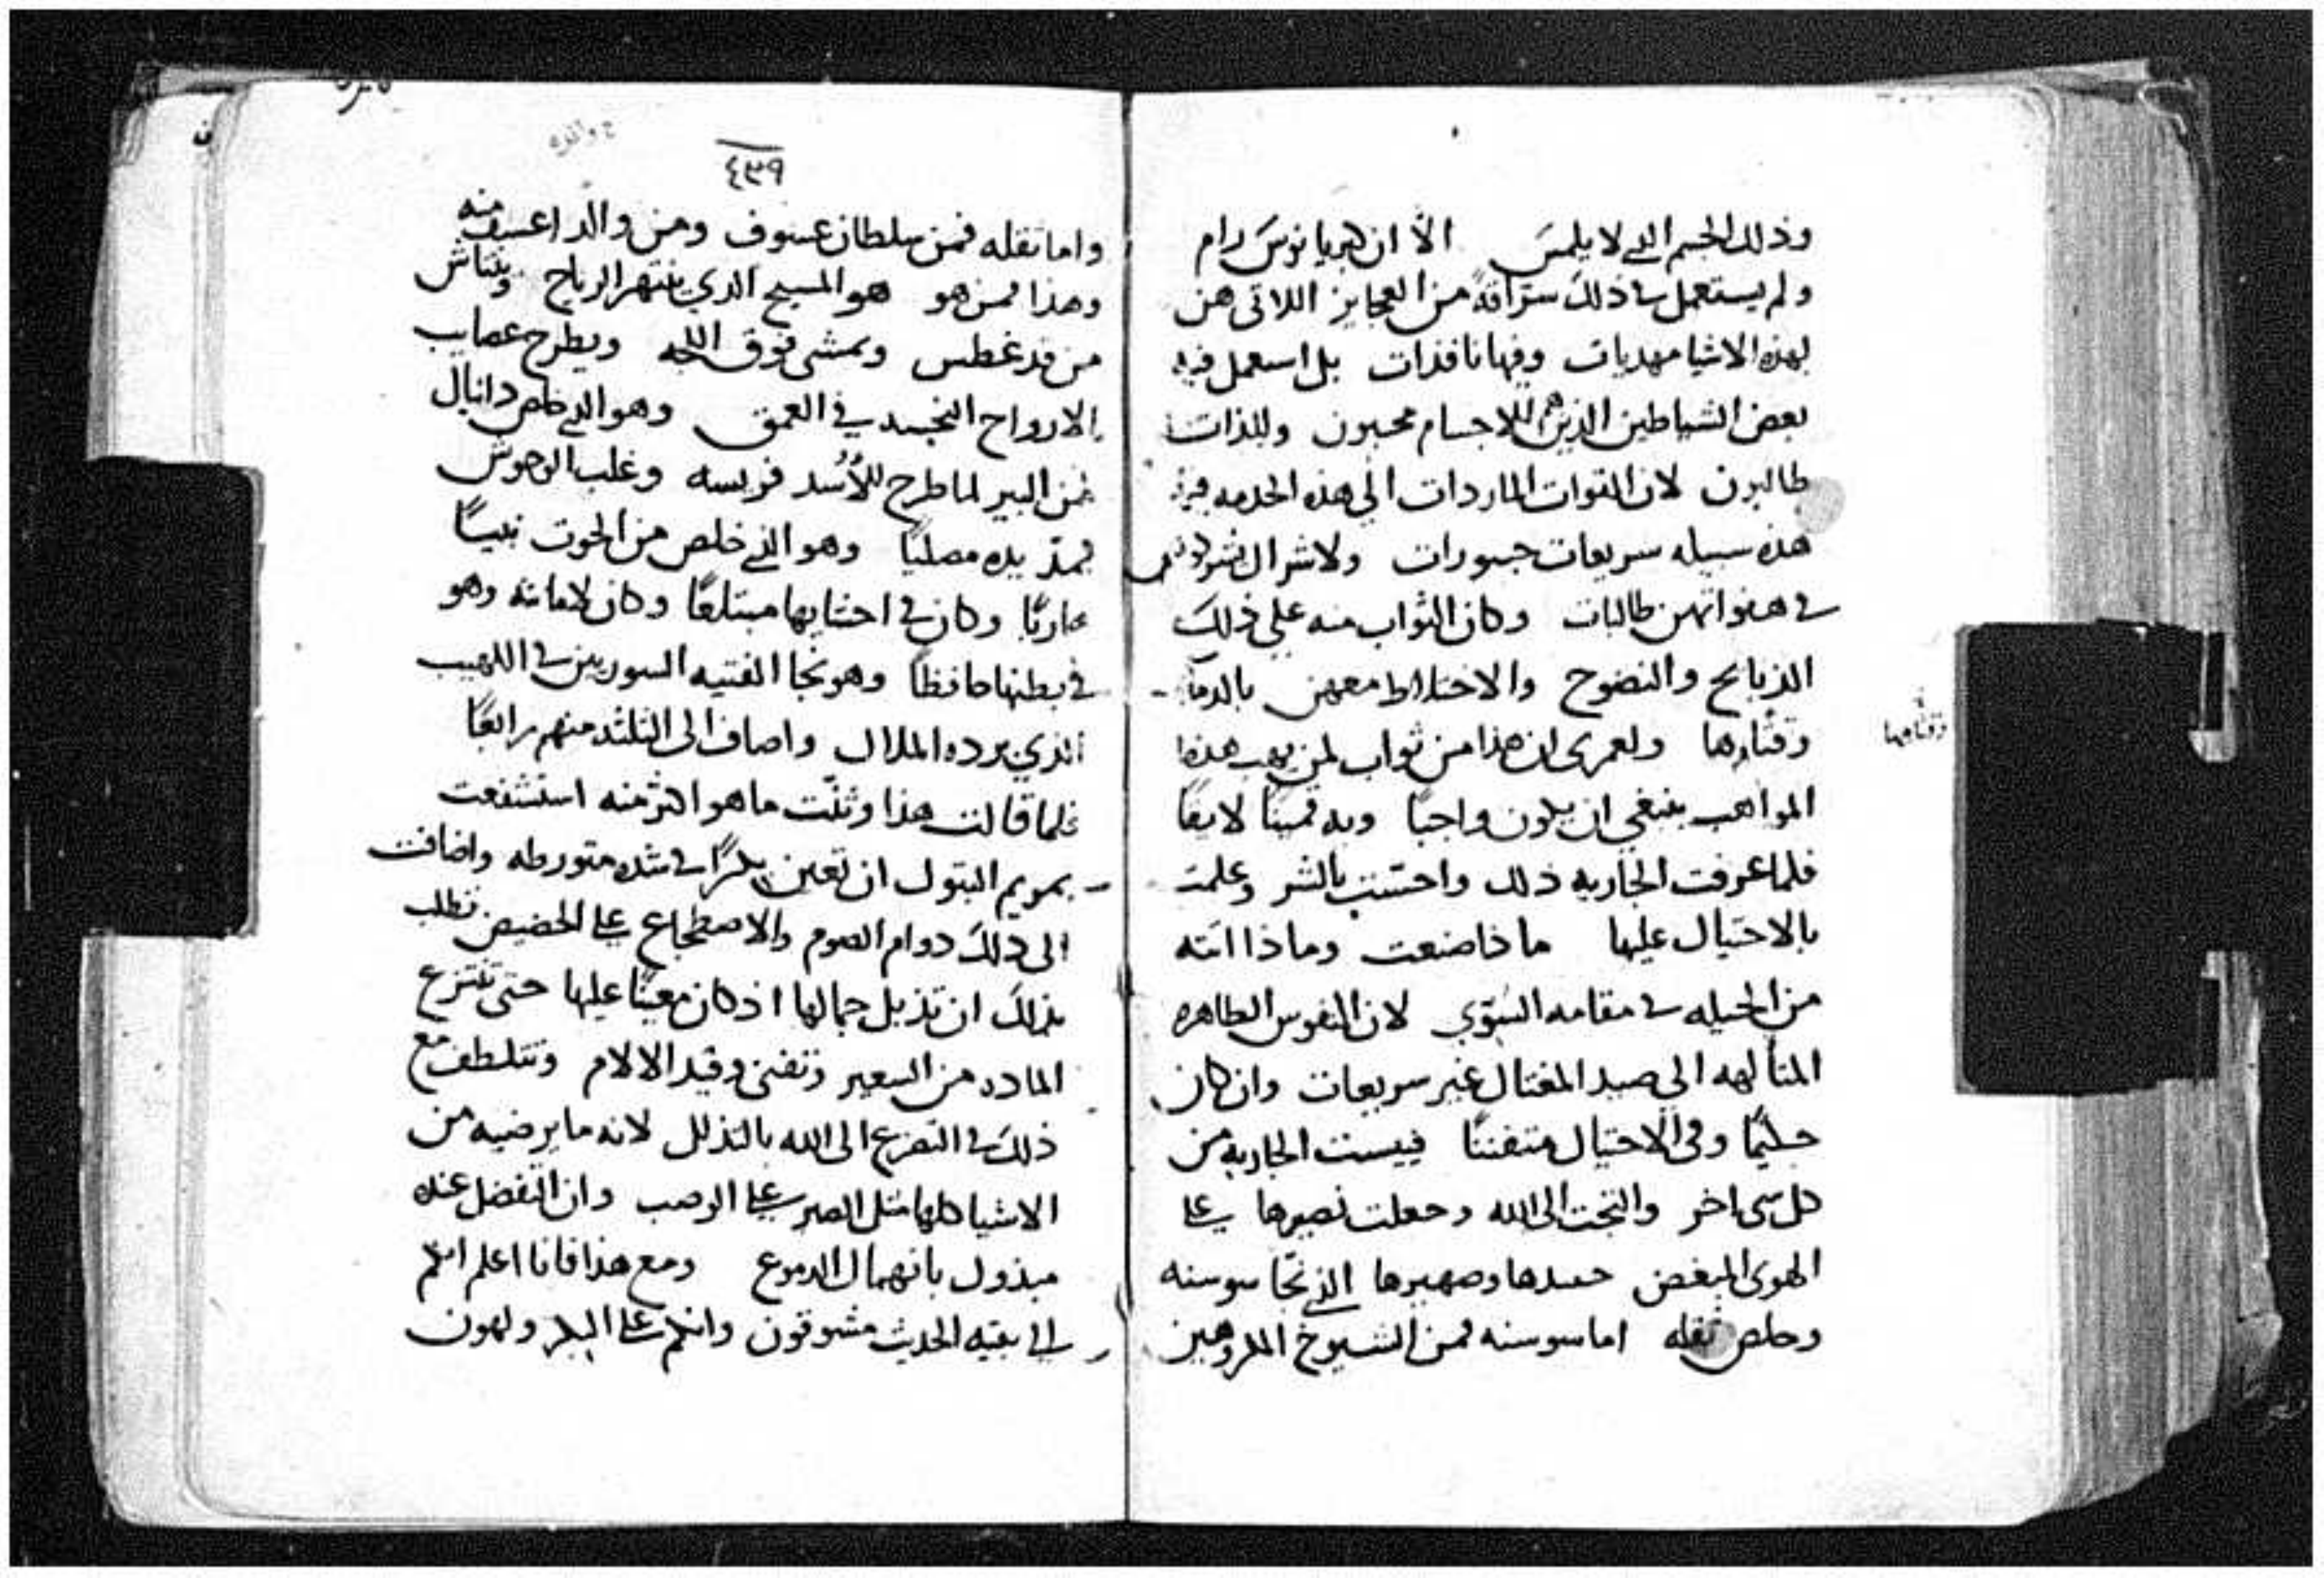 وذلك الجسم الذي لا يلمس الا ان كبريانوس رام
ولم يستعمل في ذلك سراقة من العجايز اللاتي هن
لهذه الاشيا مهديات وفيها نافذات بل استعمل فيه
بعض الشياطين الذين هم للاجسام محبون وللذات
طالبون لان القوات الماردات الي هذه الخدمه
هذه سبيله سريعات جسورات ولاشرال
في هفواتهن طالبات وكان الثواب منه علي ذلك
الذبايح والنضوح والاختلاط معهن بالدما
وقتارها ولعمري ان هذا من ثواب لمن يهب هذه
المواهب ينبغي ان يكون واجبًا وبه قمينًا لايقًا
فلما عرفت الجاريه ذلك واحتست بالشر وعلمت
بالاحتيال عليها ماذا صنعت وماذا اتته
من الحيله في مقامه السوي لان النفوس الطاهره
المتالهه الى صيد المغتال غير سريعات وان كان
حكيمًا وفي الاحتيال متفننًا فييست الجاريه من
كل شي اخر والتجت الى الله وجعلت نصيرها علي
الهوى المبغض خدنها وصهيرها الذي نجا سوسنه
وخلص ثقله اما سوسنه فمن الشيوخ المكروهين
٤٣٩
واما ثقله فمن سلطان عسوف ومن والد اعسف منه
وهذا فمن هو هو المسيح الذي ينتهر الرياح وينتاش
من قد غطس ويمشي فوق اللجه ويطرح عصايب
الارواح النجسه في العمق وهو الذي خلص دانيال
من البير لما طرح للأُسُد فريسه وغلب الوحوش
بمد يده مصليًا وهو الذي خلص من الحوت نبيًا
هاربًا وكان في احشايها مبتلعًا وكان لامانته وهو
في بطنها حافظًا وهو نجا الفتيه السوريين في اللهيب
الذي برده الملاك واضاف الى الثلثه منهم رابعًا
فلما قالت هذا وثنّت ما هو اكثر منه استشفعت
بمريم البتول ان تعين بكرًا في شده متورطه واضافت
الى ذلك دوام الصوم والاضطجاع على الحضيض تطلب
بذلك ان تذبل جمالها اذ كان معينًا عليها حتى تنتزع
الماده من السعير وتفني وقيد الالام وتتلطف مع
ذلك في التضرع الى الله بالتذلل لانه ما يرضيه من
الاشيا كلها مثل الصبر على الوصب وان التفضل عنده
مبذول بانهمال الدموع ومع هذا فانا اعلم انكم
الي بقيه الحديث متشوقون وانكم على البكر ولهون